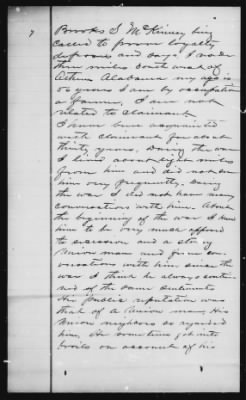 7
Brooks S. McKinney being
called to prove loyalty
deposes and says I reside
three miles south west of
Athens Alabama my age is
56 years I am by occupation
a farmer, I am not
related to claimant
I have been acquainted
with claimant for about
thirty years. During the war
I lived about eight miles
from him and did not see
him very frequently. During
the war I did not have many
conversations with him. About
the beginning of the war I knew
him to be very much opposed
to secession and a strong
Union man and from con-
versations with him since the
war I think he always enter-
nd of the same sentiments
His public reputation was
that of a Union man, His
Union neighbors so regarded
him, He sometimes got into
on account of his